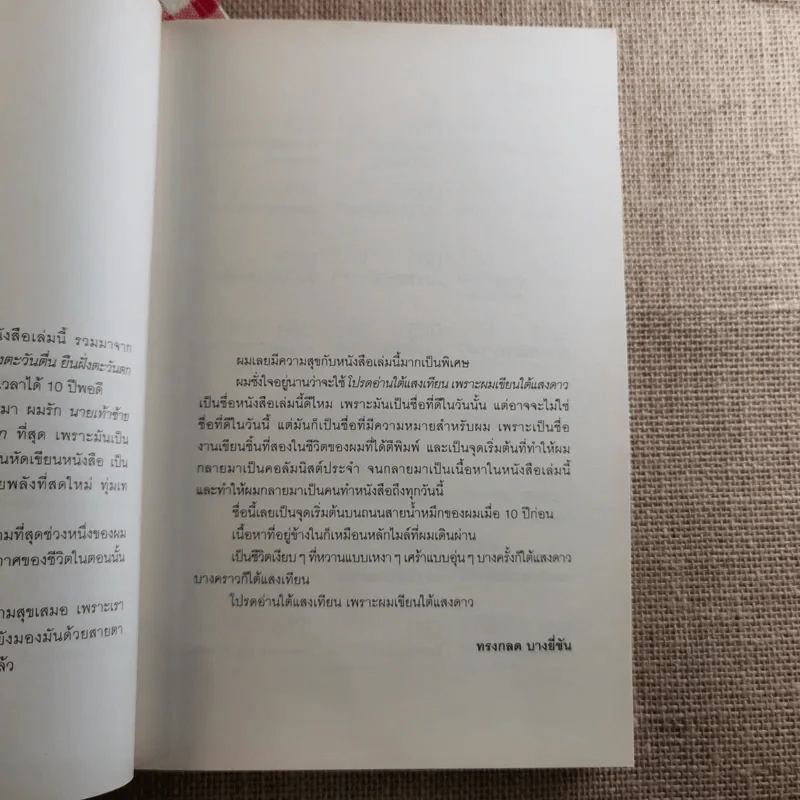 ังสือเล่มนี้ รวมมาจาก
งตะวันตื่น ยืนฝั่งตะวันตก
เวลาได้ 10 ปีพอดี
มา ผมรัก นายเท้าซ้าย
ก ที่สุด เพราะมันเป็น
นหัดเขียนหนังสือ เป็น
ยพลังที่สดใหม่ ทุ่มเท
ามที่สุดช่วงหนึ่งของผม
กาศของชีวิตในตอนนั้น
ามสุขเสมอ เพราะเรา
ยังมองมันด้วยสายตา
ล้ว
ผมเลยมีความสุขกับหนังสือเล่มนี้มากเป็นพิเศษ
ผมชั่งใจอยู่นานว่าจะใช้ โปรดอ่านใต้แสงเทียน เพราะผมเขียนใต้แสงดาว
เป็นชื่อหนังสือเล่มนี้ดีไหม เพราะมันเป็นชื่อที่ดีในวันนั้น แต่อาจจะไม่ใช่
ชื่อที่ดีในวันนี้ แต่มันก็เป็นชื่อที่มีความหมายสำหรับผม เพราะเป็นชื่อ
งานเขียนชิ้นที่สองในชีวิตของผมที่ได้ตีพิมพ์ และเป็นจุดเริ่มต้นที่ทำให้ผม
กลายมาเป็นคอลัมนิสต์ประจำ จนกลายมาเป็นเนื้อหาในหนังสือเล่มนี้
และทำให้ผมกลายมาเป็นคนทำหนังสือถึงทุกวันนี้
ชื่อนี้เลยเป็นจุดเริ่มต้นบนถนนสายน้ำหมึกของผมเมื่อ 10 ปีก่อน
เนื้อหาที่อยู่ข้างในก็เหมือนหลักไมล์ที่ผมเดินผ่าน
เป็นชีวิตเงียบ ๆ ที่หวานแบบเหงา ๆ เศร้าแบบอุ่น ๆ บางครั้งก็ใต้แสงดาว
บางคราวก็ใต้แสงเทียน
โปรดอ่านใต้แสงเทียน เพราะผมเขียนใต้แสงดาว
ทรงกลด บางยี่ขัน